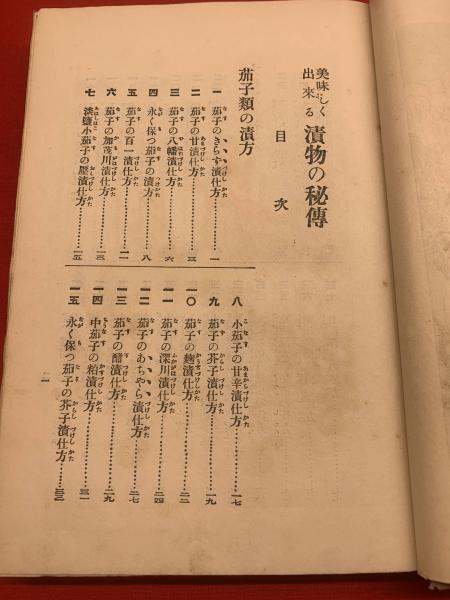 美味しく出來る 漬物の秘傳
目次
茄子類の漬方
一 茄子のきらず漬仕方…………一
二 茄子の甘漬仕方…………三
三 茄子の八幡漬仕方…………六
四 永く保つ茄子の漬方…………八
五 茄子の百一漬仕方…………一一
六 茄子の加茂川漬仕方…………一三
七 淡鹽小茄子の壓漬仕方…………一五
八 小茄子の甘辛漬仕方…………一七
九 茄子の芥子漬仕方…………一九
一〇 茄子の麹漬仕方…………二二
一一 茄子の深川漬仕方…………二四
一二 茄子のあちやら漬仕方…………二七
一三 茄子の醋漬仕方…………二九
一四 中茄子の粕漬仕方…………三一
一五 永く保つ茄子の芥子漬仕方…………三三
一